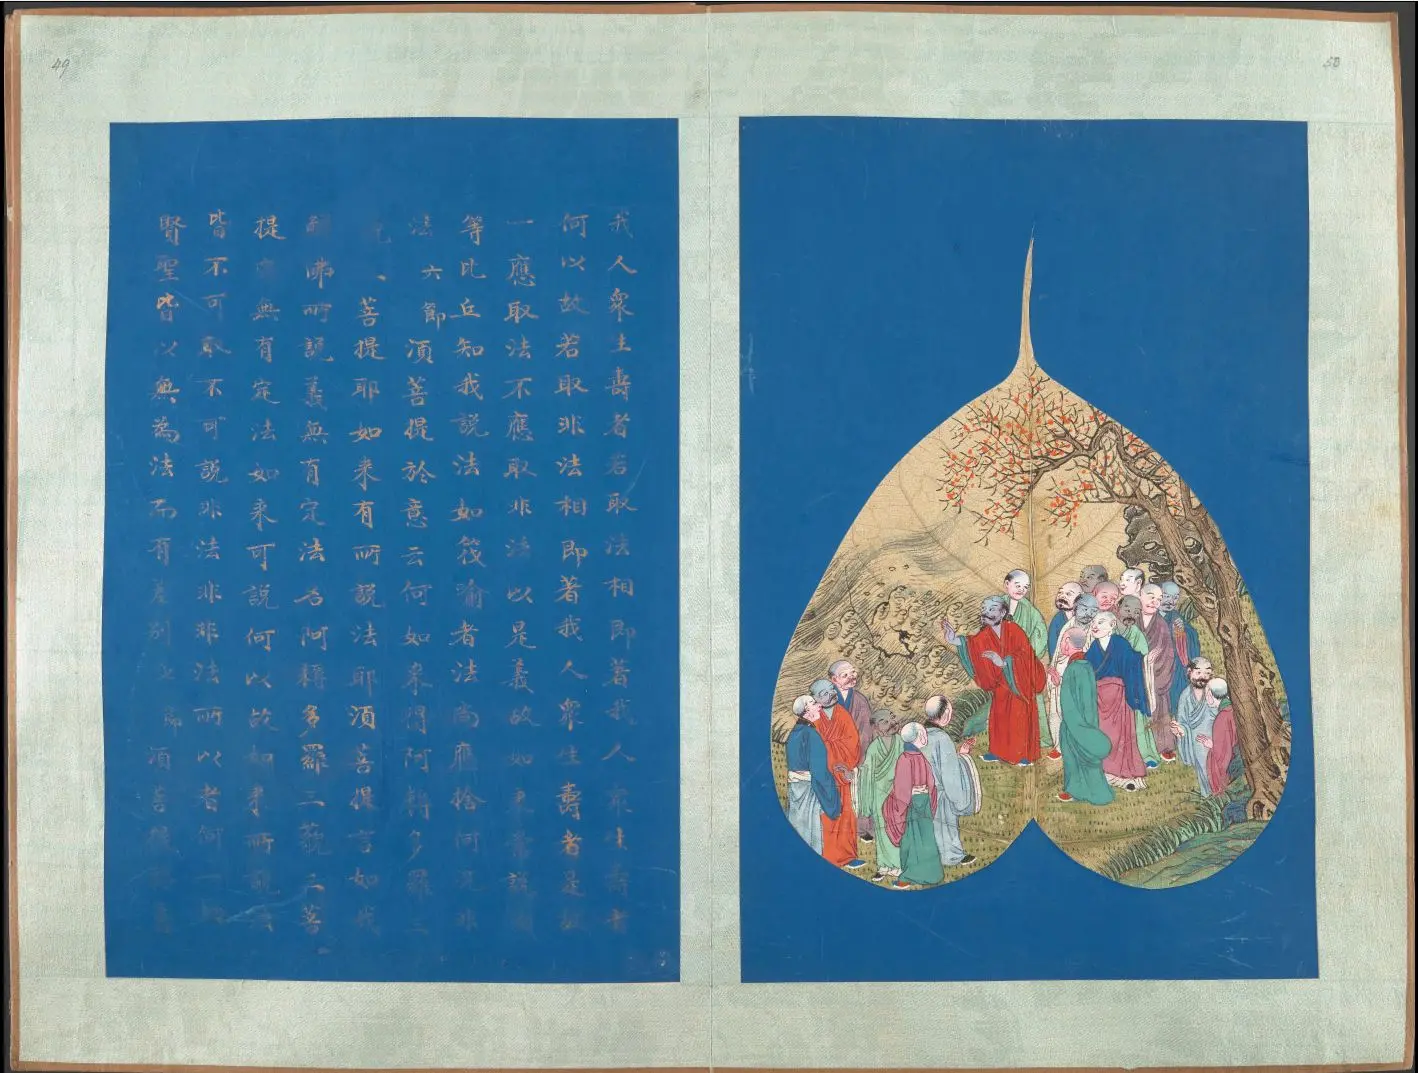 49
50
我人衆生壽者若取法相即著我人衆生壽者
何以故若取非法相即著我人衆生壽者是故
應取法不應取非法以是義故如来常說
等比丘知我說法如筏喻者法尚應捨何況非
法 六節 湏菩提於意云何如来得阿耨多羅三
菩提耶如来有所說法耶湏菩提言如我
解佛所說義無有定法名阿耨多羅三藐三菩
提亦無有定法如来可說何以故如来所說法
皆不可取不可說非法非非法所以者何一切
賢聖皆以無為法而有差別七節 湏菩提意